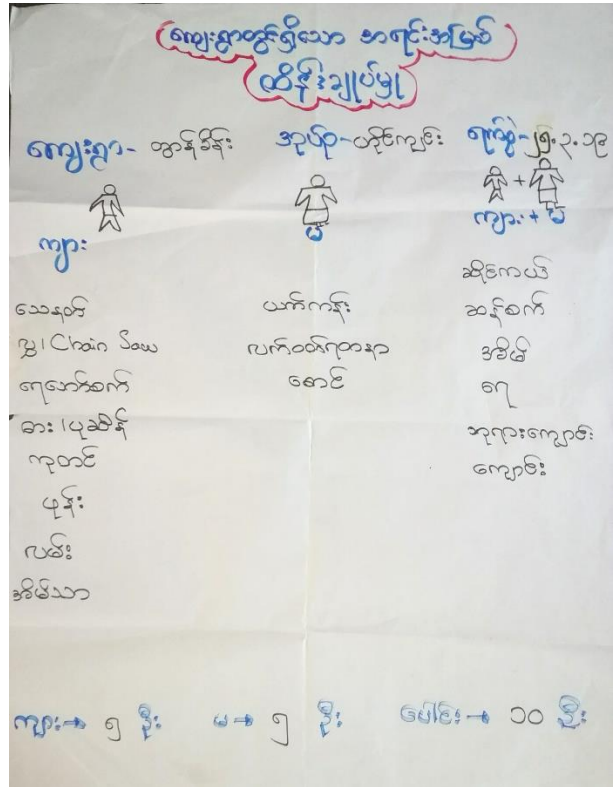 ကျေးရွာတွင်ရှိသော အရင်းအမြစ်
ထိန်းချုပ်မှု
ကျေးရွာ- ထွာန်ခိန်း အုပ်စု-ဟိုင်ကျင်း ရက်စွဲ-၂၅.၃.၁၉
+
ကျား မ ကျား + မ
သေနတ်
လွှ/Chain Saw
ရေအောက်စက်
ဓား/ပုဆိန်
ကုတင်
ဖုန်း
လမ်း
အိမ်သာ
ယက်ကန်း
လက်ဝတ်ရတနာ
စောင်
ဆိုင်ကယ်
ဆန်စက်
အိမ်
ရေ
ဘုရားကျောင်း
ကျောင်း
ကျား→ ၅ ဦး မ→ ၅ ဦး ပေါင်း→ ၁၀ ဦး